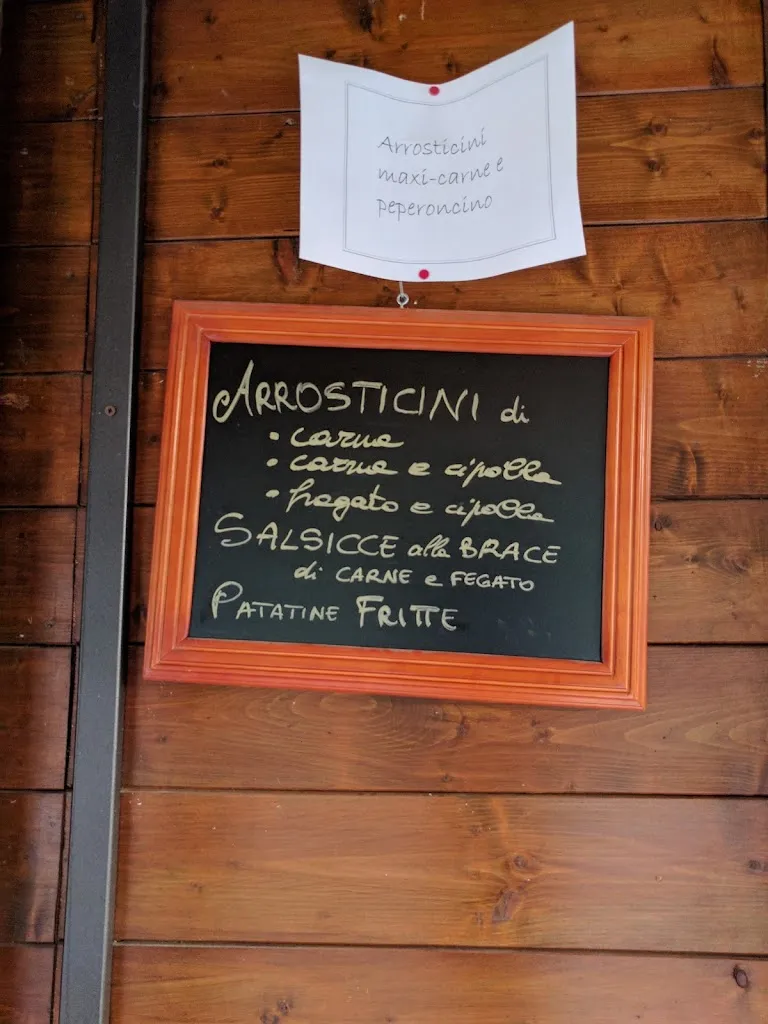 Arrosticini
maxi-carne e
peperoncino
ARROSTICINI di
• carne
• carne e cipolla
• fegato e cipolla
SALSICCE alla BRACE
di CARNE e FEGATO
PATATINE FRITTE